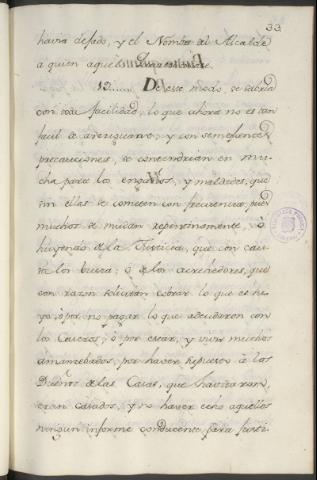 33
havia dejado, y el Nombre del Alcalde
á quien aquel
12..... De este modo, se sabria
con toda facilidad, lo que ahora no es tan
facil de averiguarse, y con semejantes
precauciones, se contendrian en mu-
cha parte los engaños, y maldades, que
sin ellas se cometen con frecuencia, pues
muchos se mudan repentinamente, ó
huyendo de la Justicia, que con cau-
sa los busca; ó de los acrehedores, que
con razon solicitan cobrar lo que es su-
yo, ó por no pagar lo que adeudaron con
los Caseros; ó por estar, y vivir muchos
amancebados, por haver supuesto á los
Dueños de las Casas, que havitavan,
eran casados, y no haver echo aquellos
ningun informe conducente para justi-